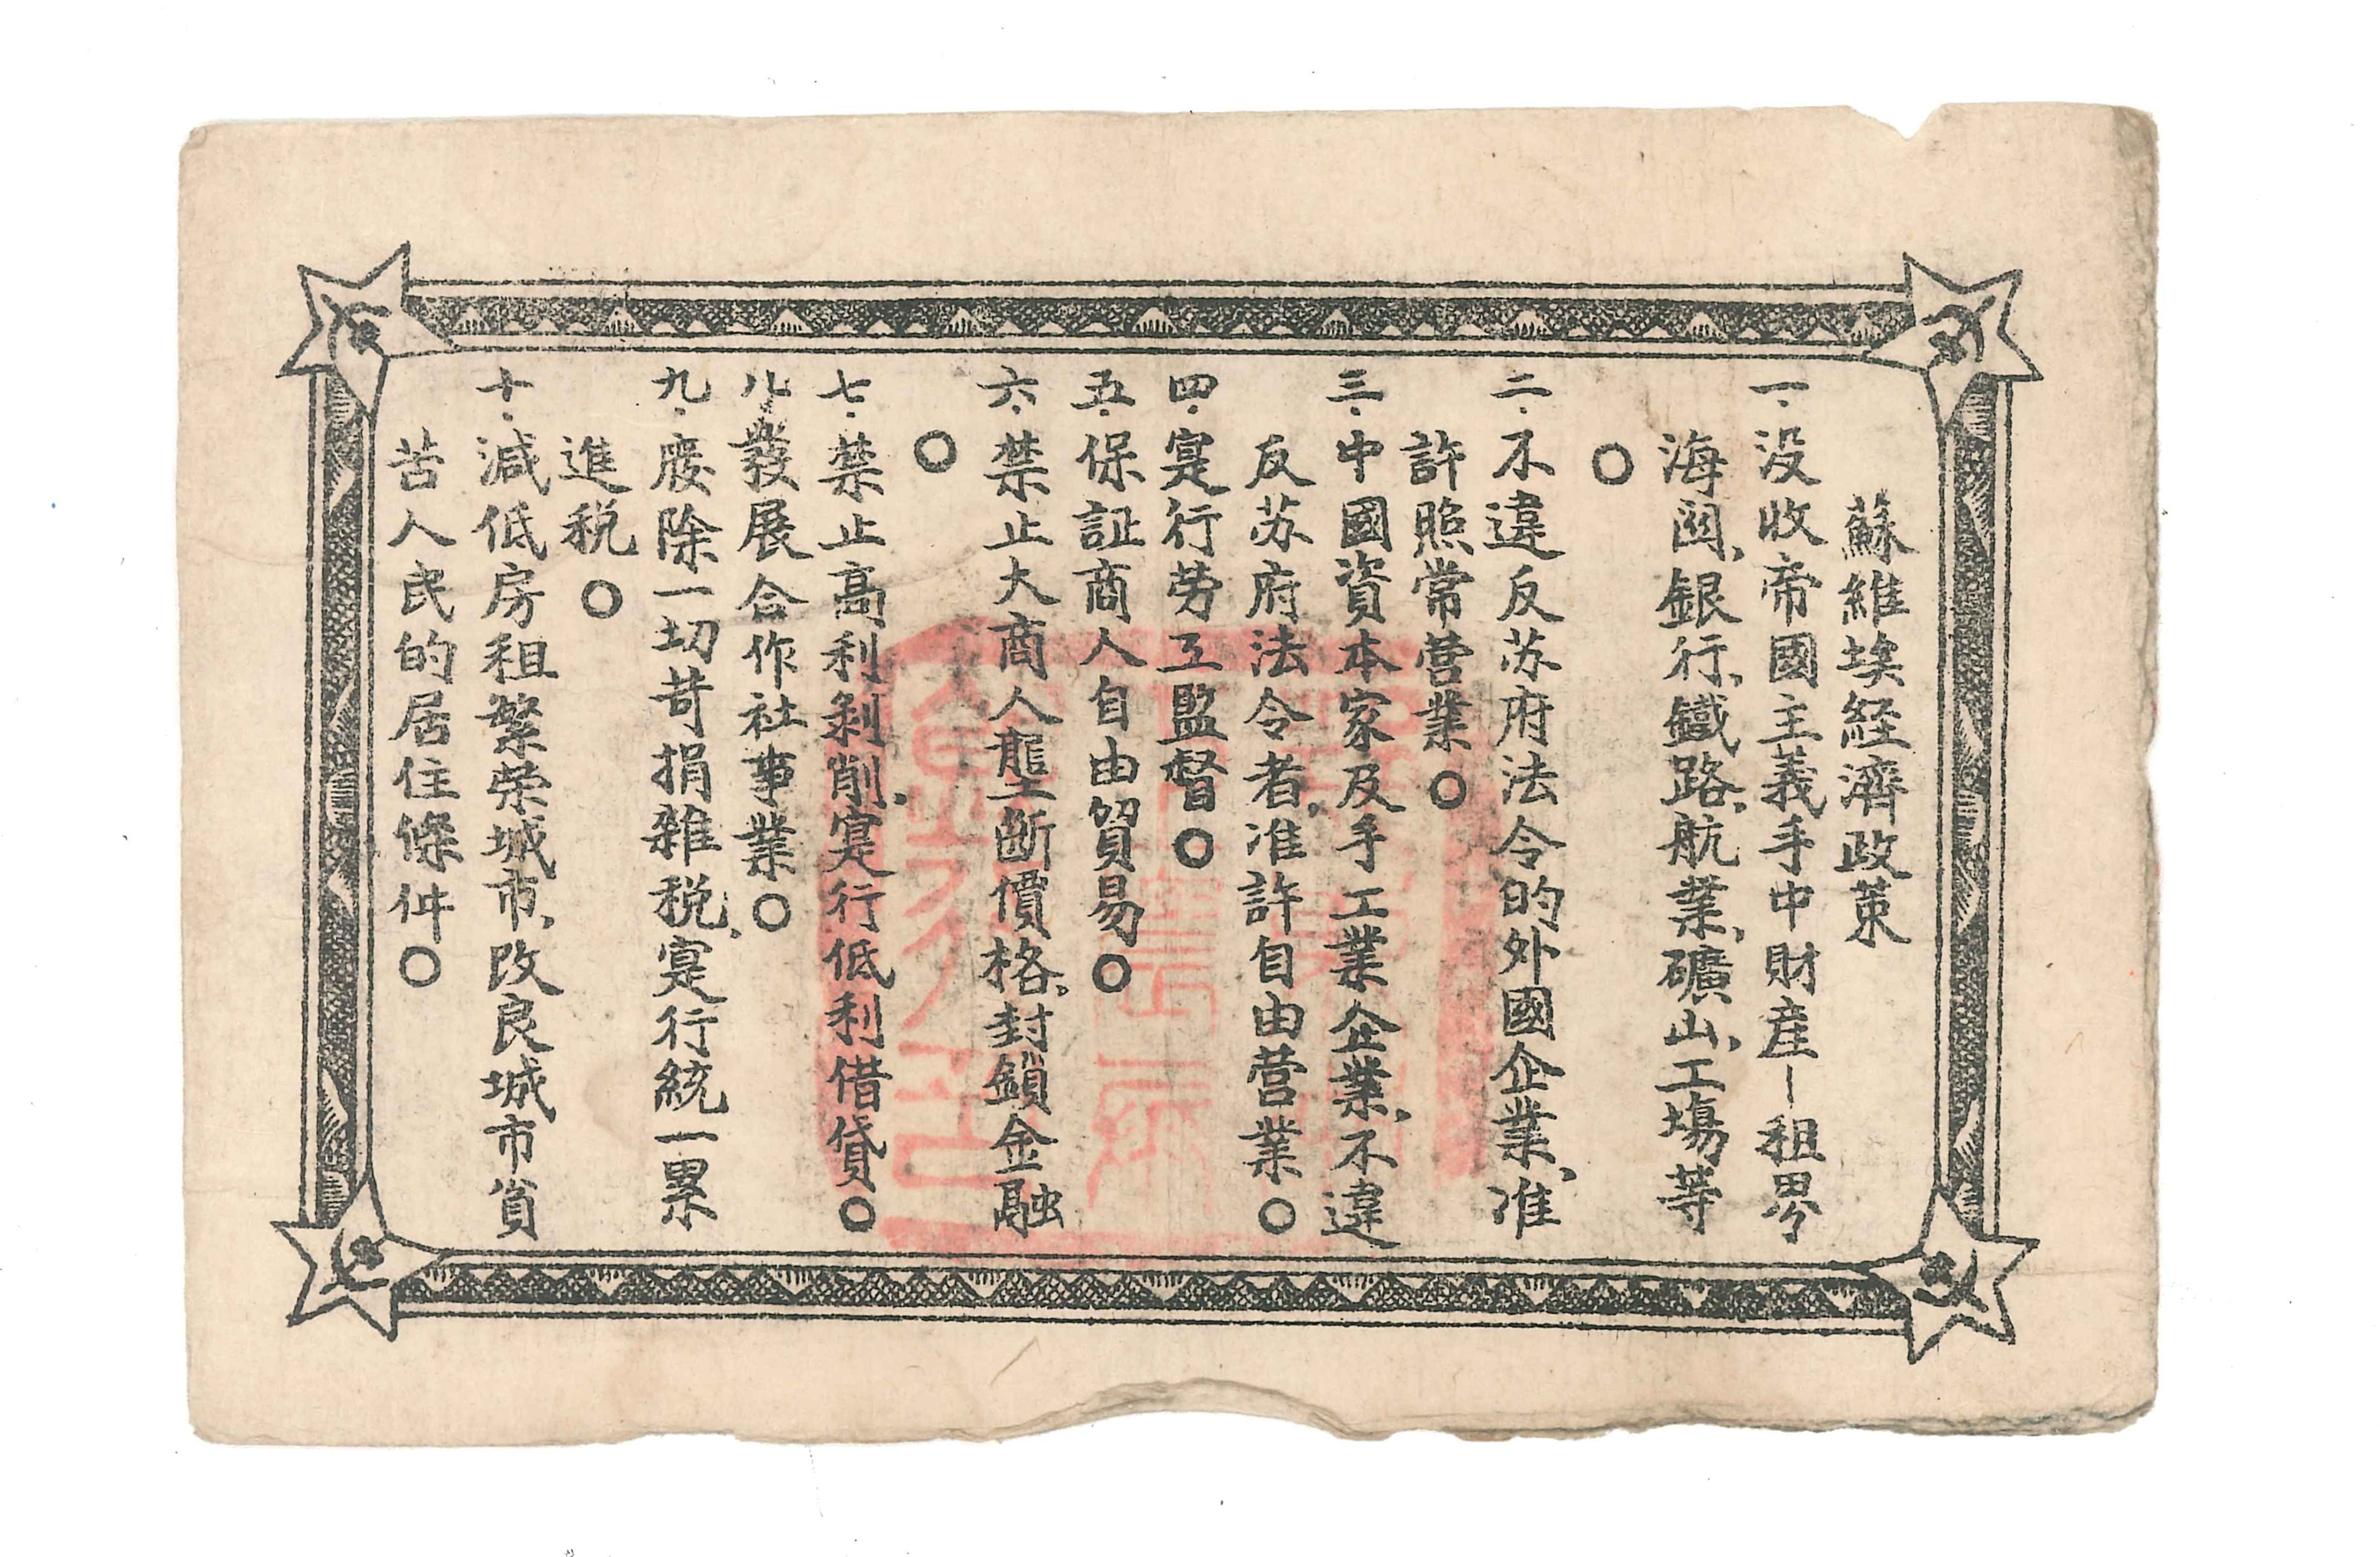 蘇維埃経濟政策
一.没收帝國主義手中財産—租界
海関、銀行、鐵路、航業、礦山、工塲等
○
二.不違反苏府法令的外國企業、准
許照常营業○
三.中國資本家及手工業企業、不違
反苏府法令者、准許自由营業○
四.寔行劳工監督○
五.保証商人自由貿易○
六.禁止大商人壟断價格、封鎖金融
○
七.禁止高利剥削、寔行低利借貸○
八.發展合作社事業○
九.废除一切苛捐雜税、寔行統一累
進税○
十.減低房租繁荣城市、改良城市貧
苦人民的居住條件○